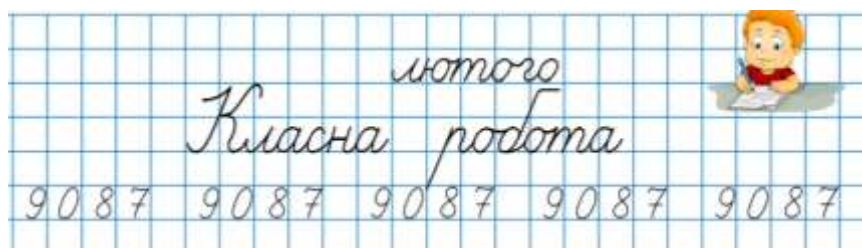 лютого
Класна робота
9 0 8 7 9 0 8 7 9 0 8 7 9 0 8 7 9 0 8 7